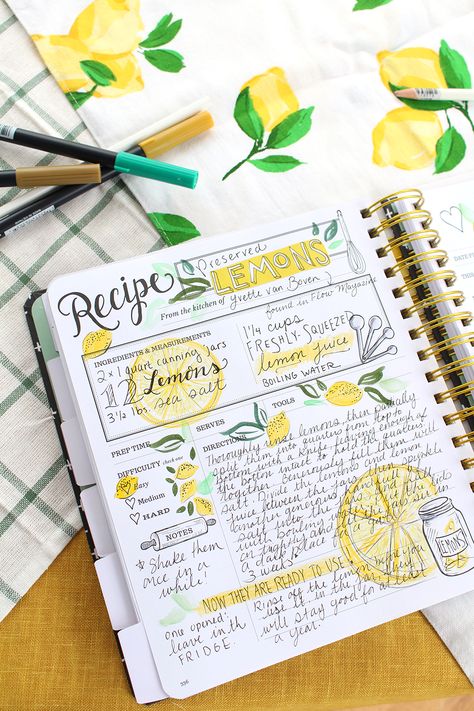 Recipe
Preserved
LEMONS
From the kitchen of Yvette van Boven,
found in Flow Magazine
INGREDIENTS & MEASUREMENTS
2 x 1 quart canning jars
12 Lemons
3 1/2 lbs. sea salt
1 1/4 cups
FRESHLY-SQUEEZED
lemon juice
BOILING WATER
PREP TIME
SERVES
TOOLS
DIFFICULTY check one
Easy
Medium
HARD
NOTES
* Shake them
once in a
while!
once opened,
leave in
FRIDGE.
DIRECTIONS
Thoroughly rinse lemons, then partially
split them into quarters from top to
bottom with a knife, leaving enough at
the bottom intact to hold the quarters
together. Generously fill them with
salt. Divide the lemons and lemon
juice between the jars and sprinkle
another generous
salt into the
boiling water
a dark place for
3 weeks
NOW THEY ARE READY TO USE
Rinse off the lemon before you
use it in the
will stay good for at least
a year.
LEMONS
336
DATE
FROM